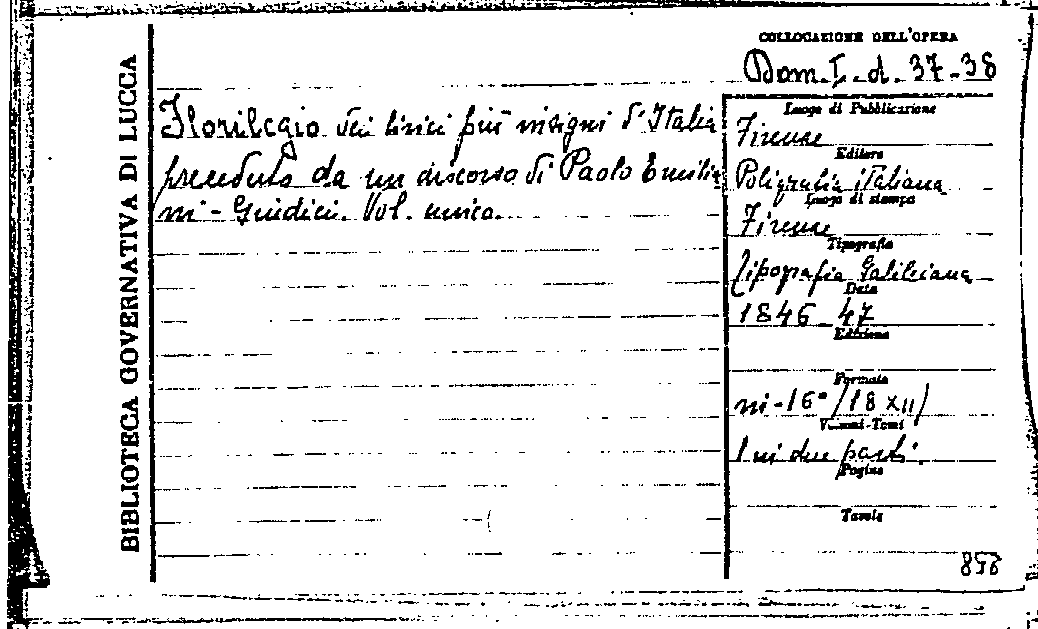 BIBLIOTECA GOVERNATIVA DI LUCCA
COLLOCAZIONE DELL'OPERA
Dom. I. d. 37-38
Florilegio dei lirici più insigni d'Italia
preceduto da un discorso di Paolo Emilia
ni-Giudici. Vol. unico.
Luogo di Pubblicazione
Firenze
Editore
Poligrafia italiana
Luogo di stampa
Firenze
Tipografia
Tipografia Galileiana
Data
1846-47
Edizione
Formato
in-16° (18x11)
Volumi-Tomi
1 in due parti.
Pagine
Tavole